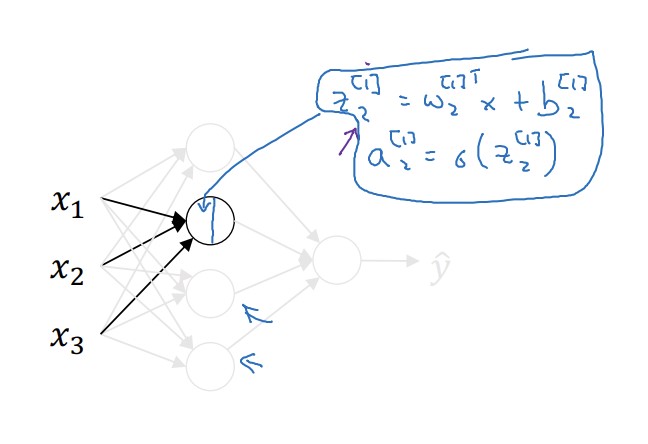 z₂^[1] = w₂^[1]T x + b₂^[1]
a₂^[1] = σ(z₂^[1])
x₁
x₂
x₃
ŷ